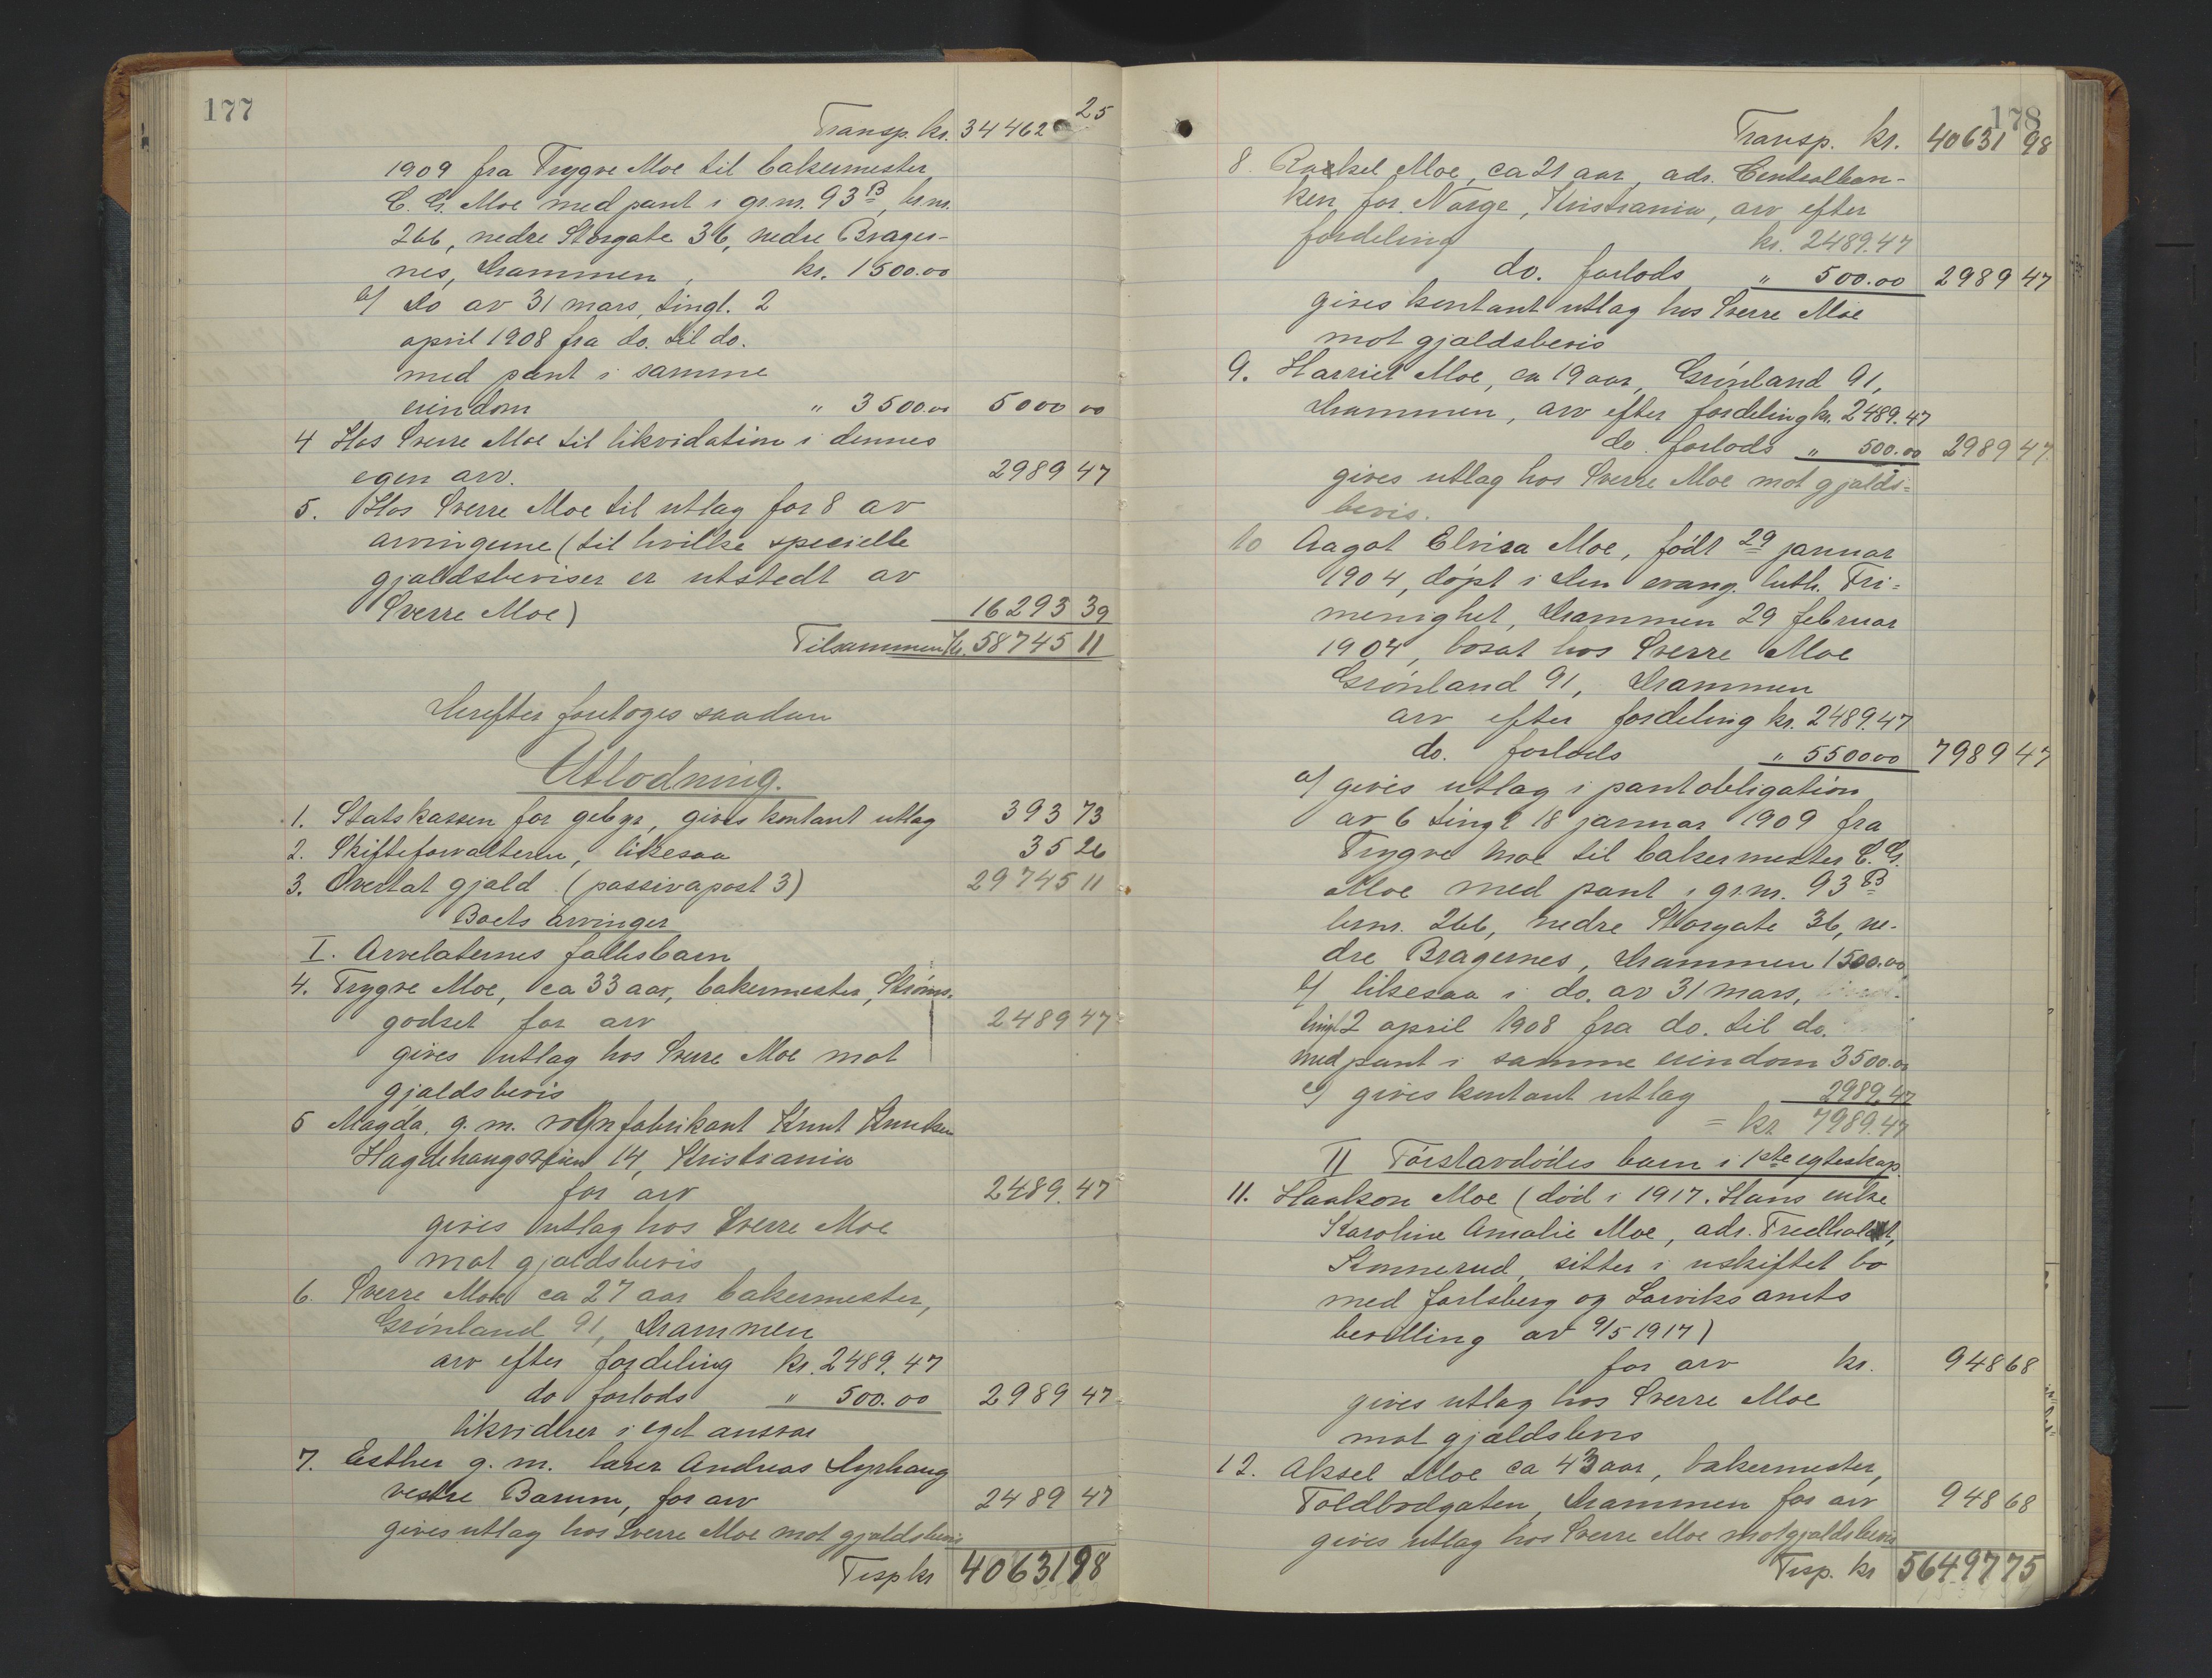 177
Transp. kr. 34462 25
1909 fra Trygve Moe til bakermester
C. G. Moe med pant i gr.nr. 93 B, br.nr.
266, nedre Storgate 36, nedre Brager-
nes, Drammen, kr. 1500.00
b/ Do av 31 mars, tingl. 2
april 1908 fra do. til do.
med pant i samme
eiendom " 3500.00 5000 00
4 Hos Sverre Moe til likvidation i dennes
egen arv. 2989 47
5. Hos Sverre Moe til utlag for 8 av
arvingerne (til hvilke specielle
gjældsbeviser er utstedt av
Sverre Moe) 16293 39
Tilsammen kr. 58745 11
Derefter foretoges saadan
Utlodning.
1. Statskassen for gebyr, gives kontant utlag 393 73
2. Skifteforvalteren, likesaa 35 26
3. Overtat gjæld (passivapost 3) 29745 11
Boets arvinger
I. Arvelaternes fællesbarn
4. Trygve Moe, ca 33 aar, bakermester, Strøms-
godset for arv 2489 47
gives utlag hos Sverre Moe mot
gjældsbevis
5 Magda, g. m. vognfabrikant Knut Knutsen
Hagdehaugsveien 14, Kristiania
for arv 2489.47
gives utlag hos Sverre Moe
mot gjældsbevis
6. Sverre Moe ca 27 aar bakermester,
Grønland 91, Drammen
arv efter fordeling kr. 2489.47
do forlods " 500.00 2989 47
likviderer i eget ansvar
7. Esther g. m. lærer Andreas Dyrhaug
vestre Bærum, for arv 2489 47
gives utlag hos Sverre Moe mot gjældsbevis
Tisp kr 40631 98
178
Transp. kr. 40631 98
8. Rakel Moe, ca 21 aar, adr. Centralban-
ken for Norge, Kristiania, arv efter
fordeling kr. 2489.47
do. forlods " 500.00 2989 47
gives kontant utlag hos Sverre Moe
mot gjældsbevis
9. Harriet Moe, ca 19 aar, Grønland 91,
Drammen, arv efter fordeling kr. 2489.47
do. forlods " 500.00 2989 47
gives utlag hos Sverre Moe mot gjælds-
bevis.
10 Aagot Elvira Moe, født 29 januar
1904, døpt i Den evang. luth. Fri-
menighet, Drammen 29 februar
1904, bosat hos Sverre Moe
Grønland 91, Drammen
arv efter fordeling kr. 2489.47
do. forlods " 5500 00 7989 47
a/ gives utlag i pantobligation
av 6 tingl 18 januar 1909 fra
Trygve Moe til bakermester C. G.
Moe med pant i gr.nr. 93 B
br.nr. 266, nedre Storgate 36, ne-
dre Bragernes, Drammen 1500.00
b/ likesaa i do. av 31 mars,
tingl 2 april 1908 fra do. til do.
med pant i samme eiendom 3500.00
c/ gives kontant utlag 2989.47
= kr 7989.47
II Førstavdødes barn i 1ste egteskap.
11. Haakon Moe (død i 1917. Hans enke
Karoline Amalie Moe, adr. Fredholt,
Konnerud, sitter i uskiftet bo
med Jarlsberg og Larviks amts
bevilling av 9/5 1917)
for arv kr. 948 68
gives utlag hos Sverre Moe
mot gjældsbevis
12. Aksel Moe ca 43 aar, bakermester,
Toldbodgaten, Drammen for arv 948 68
gives utlag hos Sverre Moe mot gjældsbevis
Tisp. kr 56497 75